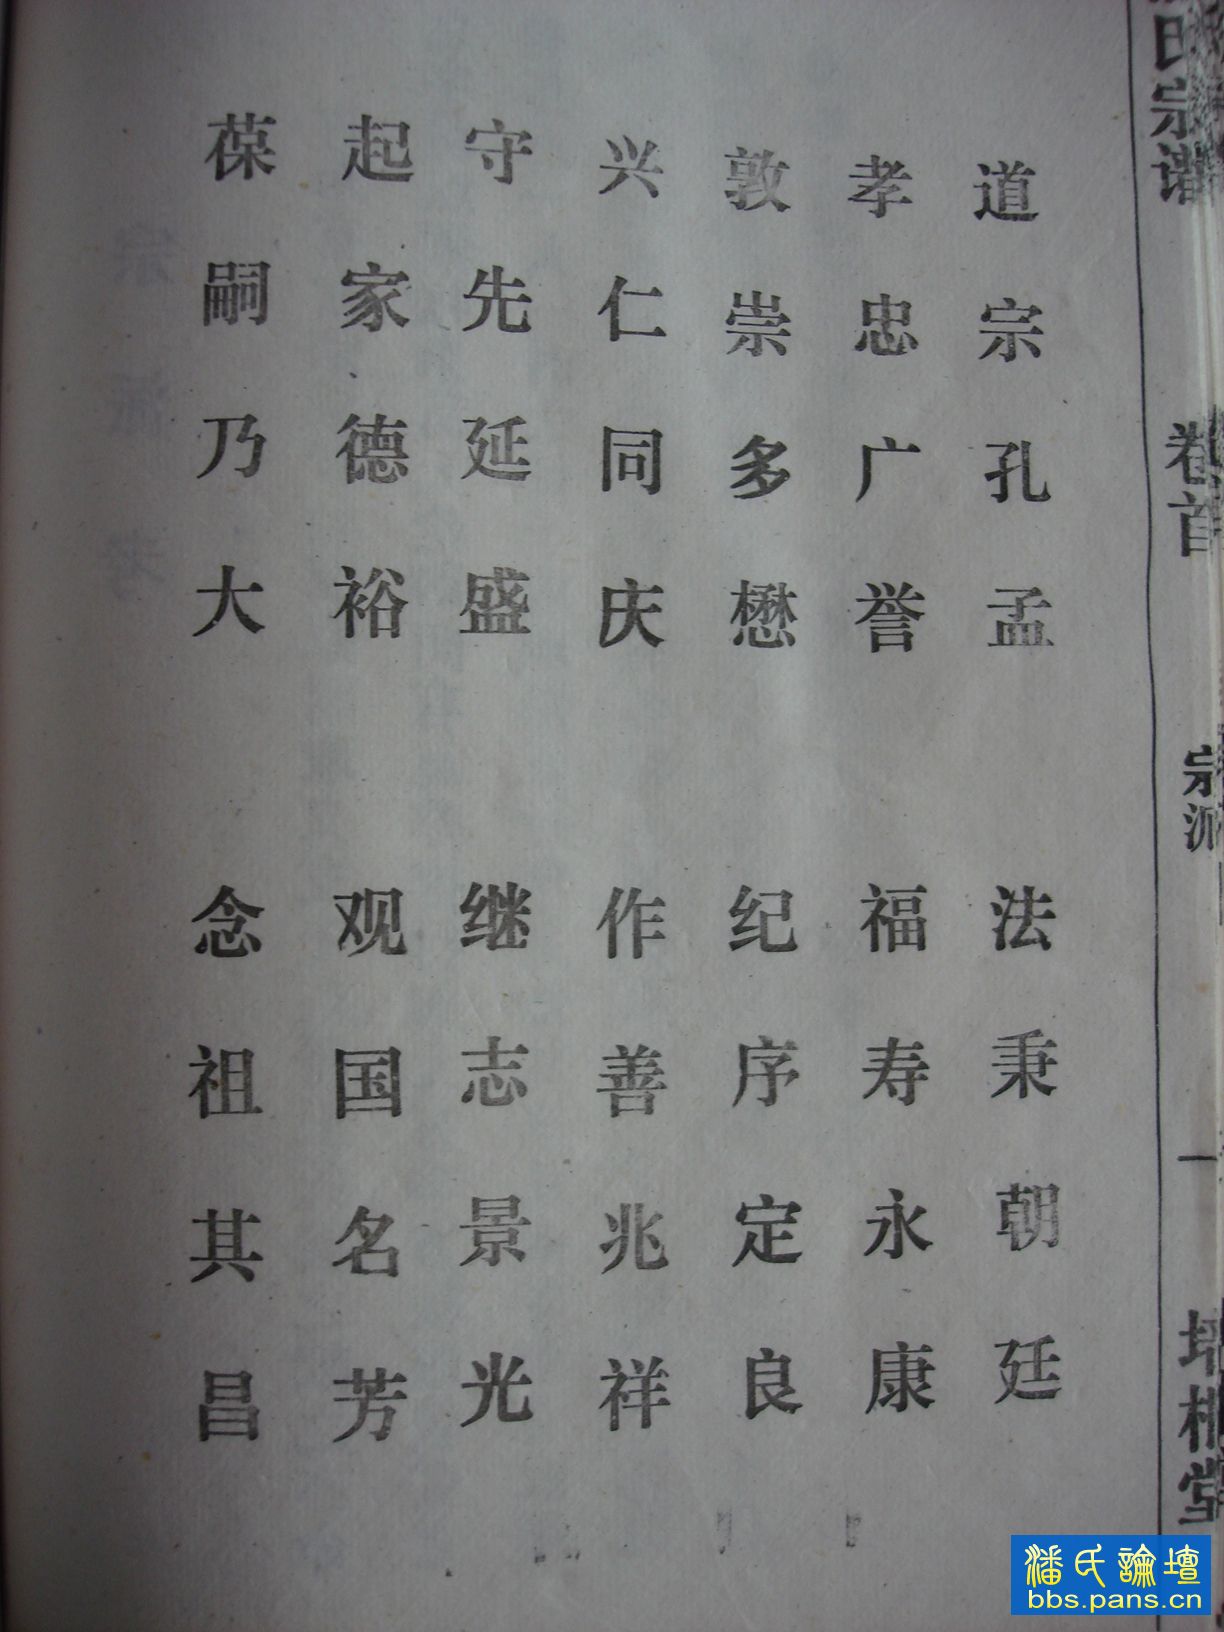 氏宗谱 卷首 宗派 一 培根堂
道宗孔孟 法秉朝廷
孝忠广誉 福寿永康
敦崇多懋 纪序定良
兴仁同庆 作善兆祥
守先延盛 继志景光
起家德裕 观国名芳
葆嗣乃大 念祖其昌
潘氏論壇
bbs.pans.cn